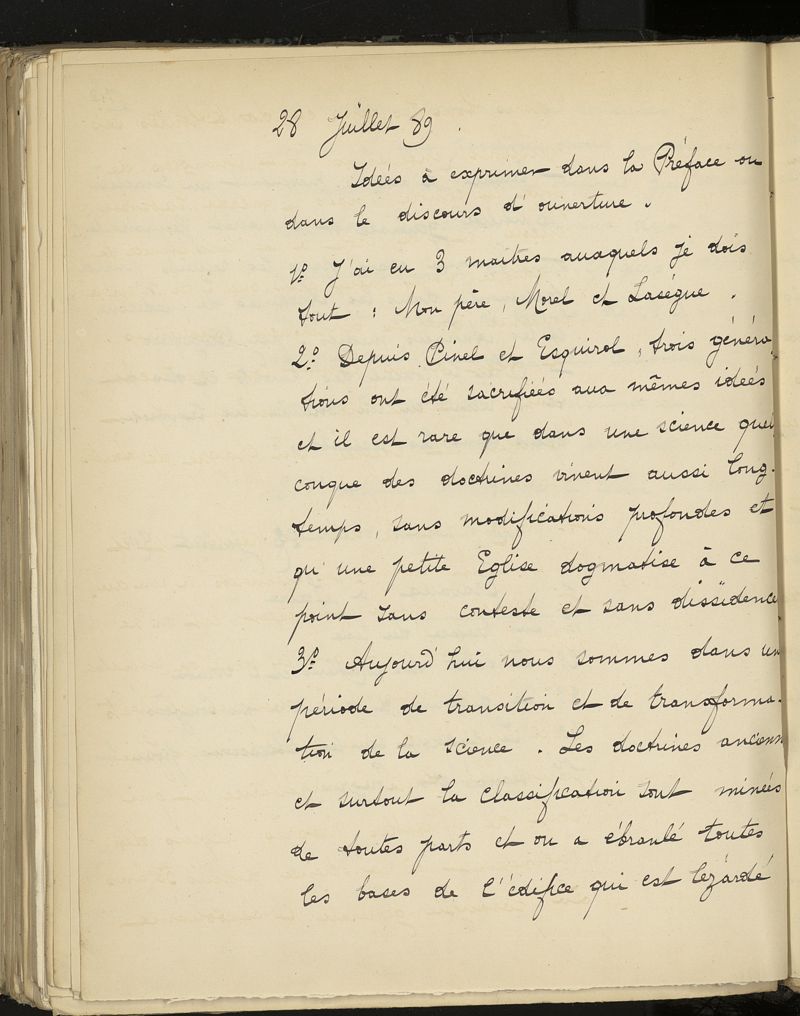 28 Juillet 89.
Idées à exprimer dans la Préface ou
dans le discours d'ouverture.
1º J'ai eu 3 maîtres auxquels je dois
tout : Mon père, Morel et Lasègue.
2º Depuis Pinel et Esquirol, trois généra-
tions ont été sacrifiées aux mêmes idées
et il est rare que dans une science quel
conque des doctrines vivent aussi long-
temps, sans modifications profondes et
qu'une petite Eglise dogmatise à ce
point sans conteste et sans dissidence
3º Aujourd'hui nous sommes dans un
période de transition et de transforma-
tion de la science. Les doctrines ancienn
et surtout la classification sont minées
de toutes parts et on a ébranlé toutes
les bases de l'édifice qui est lézardé